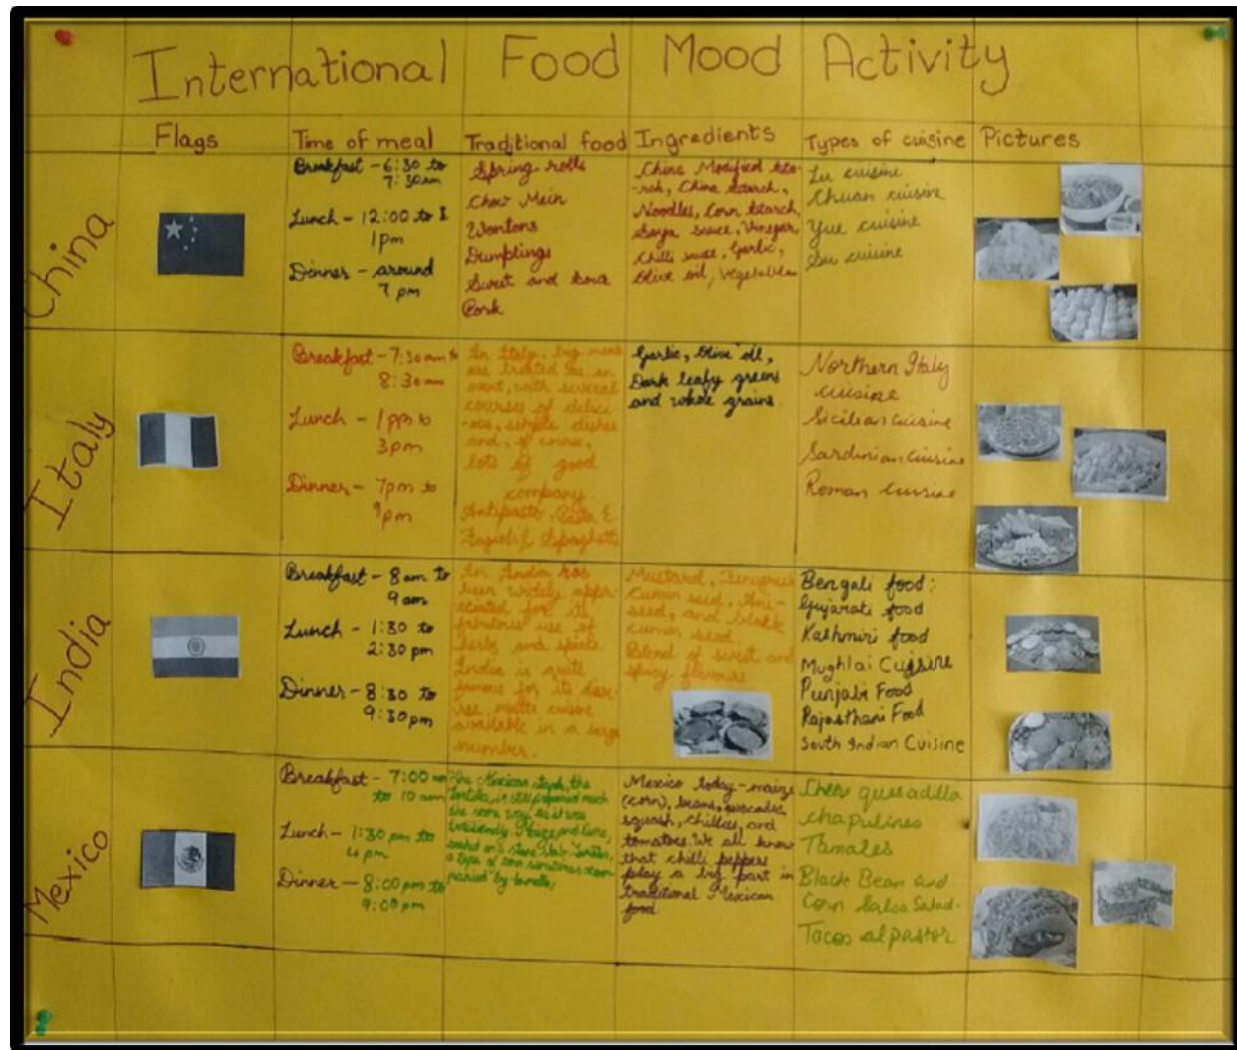 International Food Mood Activity
Flags
Time of meal
Traditional food
Ingredients
Types of cuisine
Pictures
China
Breakfast - 6:30 to
7:30am
Lunch - 12:00 to 1
1pm
Dinner - around
7 pm
Spring rolls
Chow Mein
Wontons
Dumplings
Sweet and Sour
Pork
China Modified sta-
rch, China starch,
Noodles, Corn starch,
Soya sauce, Vinegar,
Chilli sauce, Garlic,
Olive oil, Vegetables
Lu cuisine
Chuan cuisine
Yue cuisine
Su cuisine
Italy
Breakfast - 7:30am to
8:30am
Lunch - 1pm to
3pm
Dinner - 7pm to
9pm
In Italy, big meals
are treated like an
event, with several
courses of delici-
ous, simple dishes
and, of course,
lots of good
company.
Antipasto, Pasta E
Fagioli, Spaghetti
Garlic, Olive oil,
Dark leafy greens
and whole grains.
Northern Italy
cuisine
Sicilian Cuisine
Sardinian Cuisine
Roman cuisine
India
Breakfast - 8am to
9am
Lunch - 1:30 to
2:30 pm
Dinner - 8:30 to
9:30pm
In India has
been widely appr-
eciated for its
fabulous use of
herbs and spices.
India is quite
famous for its
cuisine
available in a large
number.
Mustard,
cumin seed, Ani-
seed, and black
cumin seed.
Blend of sweet and
spicy flavours
Bengali food:
Gujarati food
Kashmiri food
Mughlai Cuisine
Punjabi Food
Rajasthani Food
South Indian Cuisine
Mexico
Breakfast - 7:00 am
to 10 am
Lunch - 1:30 pm to
4 pm
Dinner - 8:00pm to
9:00pm
The Mexican staple, the
tortilla, is still prepared much
the same way as it was
Maize and lime,
a type of corn sometimes
by tomato,
Mexico today - maize
(corn), beans, avocados,
squash, chillies, and
tomatoes. We all know
that chilli peppers
play a big part in
traditional Mexican
food
Cheese quesadilla
chapulines
Tamales
Black Bean and
Corn Salsa Salad-
Tacos al pastor